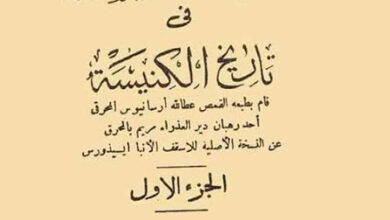 فى
تاريخ الكنيسة
قام بطبعه القمص عطالله أرسانيوس المحرقى
أحد رهبان دير العذراء مريم بالمحرق
عن النسخة الأصلية للاسقف الأنبا ايسيذورس
الجزء الاول